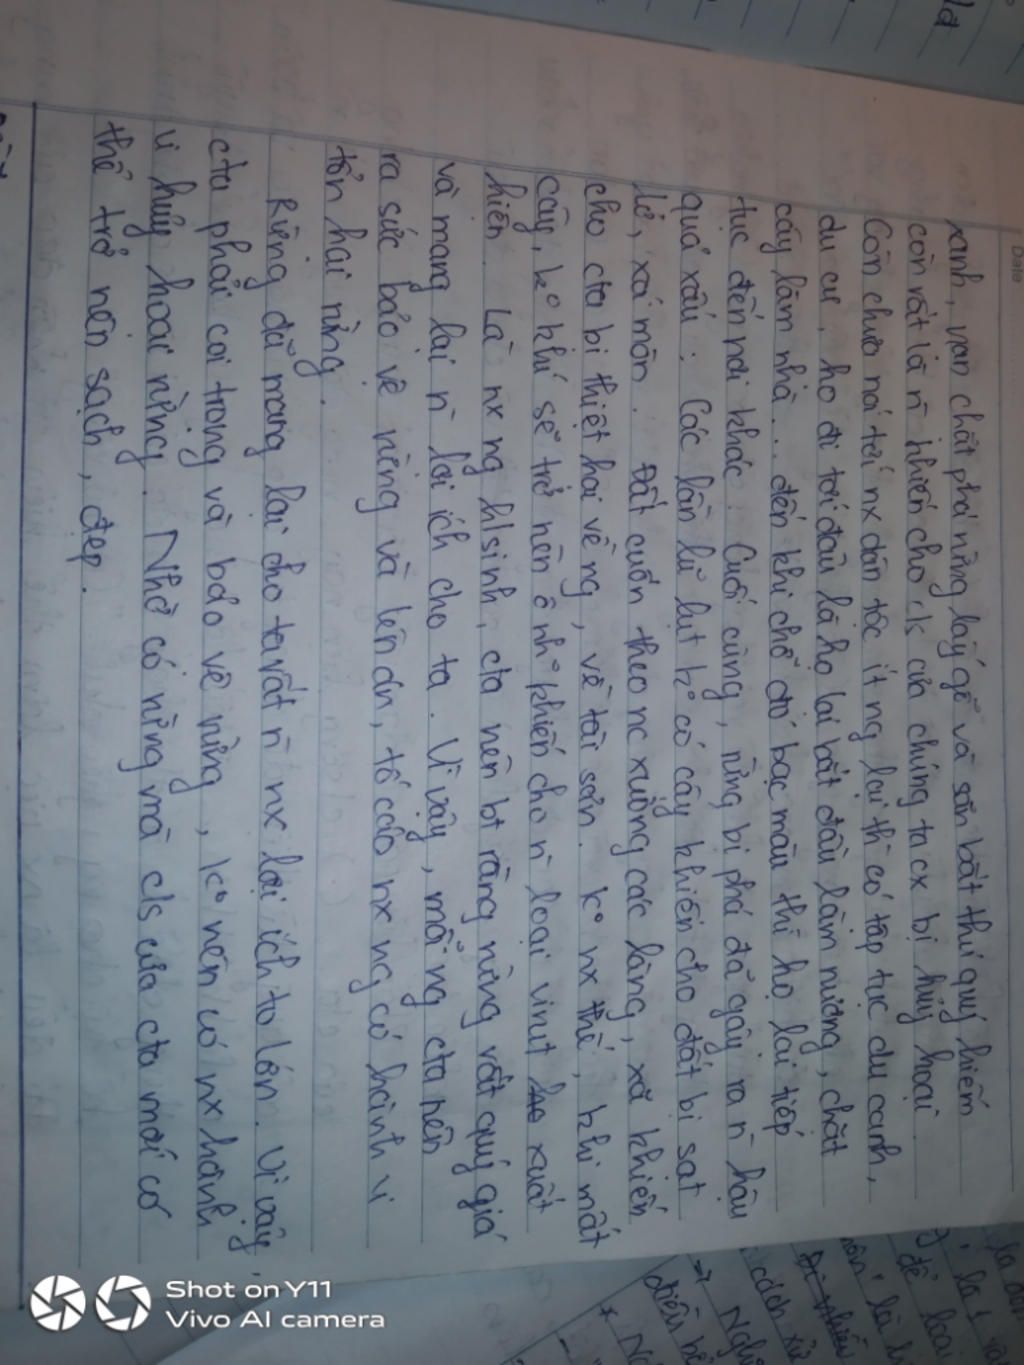 Date
xanh, nạn chặt phá rừng lấy gỗ và săn bắt thú quý hiếm
còn rất là n` khiến cho c/s của chúng ta cx bị hủy hoại.
Còn chưa nói tới nx dân tộc ít ng lại thì có tập tục du canh,
du cư, họ đi tới đâu là họ lại bắt đầu làm nương, chặt
cây làm nhà... đến khi chỗ đó bạc màu thì họ lại tiếp
tục đến nơi khác. Cuối cùng, rừng bị phá đã gây ra n` hậu
quả xấu: Các lần lũ lụt ko có cây khiến cho đất bị sạt
lở, xói mòn. Đất cuốn theo nc xuống các làng, xã khiến
cho cta bị thiệt hại về ng, về tài sản. Ko nx thế, khi mất
cây, ko khí sẽ trở nên ô nh° khiến cho n` loại virut xuất
hiện. Là nx ng h/sinh, cta nên bt rằng rừng rất quý giá
và mang lại n` lợi ích cho ta. Vì vậy, mỗi ng cta nên
ra sức bảo vệ rừng và lên án, tố cáo nx ng có hành vi
tổn hại rừng.
Rừng đã mang lại cho ta rất n` nx lợi ích to lớn. Vì vậy,
cta phải coi trọng và bảo vệ rừng, ko nên có nx hành
vi hủy hoại rừng. Nhờ có rừng mà c/s của cta mới có
thể trở nên sạch, đẹp.
Shot on Y11
Vivo AI camera